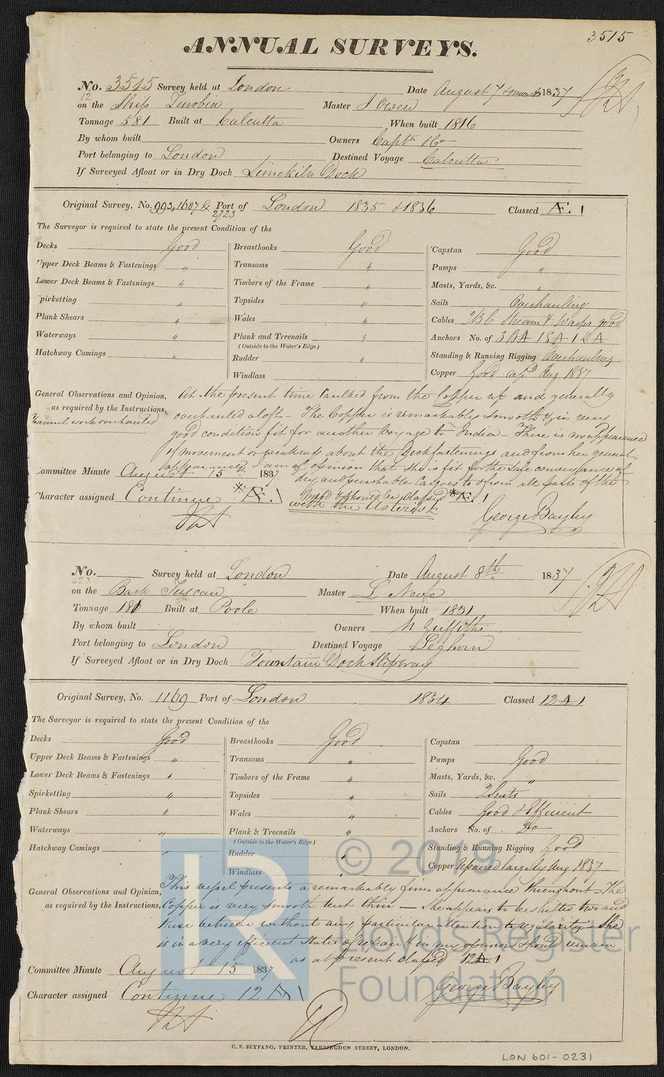 3515
ANNUAL SURVEYS.
No. 3515 Survey held at London Date August 7 1837
on the Ship Zenobia Master J Owen
Tonnage 581 Built at Calcutta When built 1816
By whom built Owners Captn & Co
Port belonging to London Destined Voyage Calcutta
If Surveyed Afloat or in Dry Dock Limekiln Dock
Original Survey, No. 993, 1687 & 2723 Port of London 1835 & 1836 Classed Æ. 1
The Surveyor is required to state the present Condition of the
Decks Good Breasthooks Good Capstan Good
Upper Deck Beams & Fastenings " Transoms " Pumps "
Lower Deck Beams & Fastenings " Timbers of the Frame " Masts, Yards, &c. "
Spirketting " Topsides " Sails Overhauling
Plank Shears " Wales " Cables 2 B C Stream & Warps good
Waterways " Plank and Treenails " Anchors No. of 3 B A 1 S A 1 2 A
(Outside to the Water's Edge)
Hatchway Comings " Rudder " Standing & Running Rigging Overhauling
Windlass Copper Good Aug 1837
General Observations and Opinion, At the present time Caulked from the Copper up and generally
as required by the Instructions, overhauled aloft - The Copper is remarkably smooth & in very
good condition fit for another Voyage to India - There is no appearance
of movement or about the Deck fastenings and from her general
appearance I am of opinion that she is fit for the safe conveyance of
Committee Minute August 15 1837 dry and perishable Cargoes to & from all parts of the
Character assigned Continue *Æ. 1 classed *Æ. 1
with the Asterisk
George Bayley
No. Survey held at London Date August 8th 1837
on the Bark Tuscan Master L Nause
Tonnage 181 Built at Poole When built 1831
By whom built Owners N Griffiths
Port belonging to London Destined Voyage Leghorn
If Surveyed Afloat or in Dry Dock Fountain Dock Slipway
Original Survey, No. 1169 Port of London 1834 Classed 12 A 1
The Surveyor is required to state the present Condition of the
Decks Good Breasthooks Good Capstan
Upper Deck Beams & Fastenings " Transoms " Pumps Good
Lower Deck Beams & Fastenings " Timbers of the Frame " Masts, Yards, &c. "
Spirketting " Topsides " Sails 2 Suits
Plank Shears " Wales " Cables Good & Efficient
Waterways " Plank & Treenails " Anchors No. of Do
(Outside to the Water's Edge)
Hatchway Comings " Rudder " Standing & Running Rigging Good
Windlass Copper Repaired largely Aug 1837
General Observations and Opinion, This vessel presents a remarkably firm appearance throughout. The
as required by the Instructions, Copper is very smooth but thin - She appears to be butted two and
three between without any particular attention to regularity. She
is in a very efficient state of repair & in my opinion should remain
as at present classed 12 A 1
Committee Minute August 15 1837
Character assigned Continue 12 A 1
George Bayley
C. F. SEYFANG, PRINTER, FARRINGDON STREET, LONDON.
LON 601-0231
© 2019
Lloyd's Register
Foundation
LR